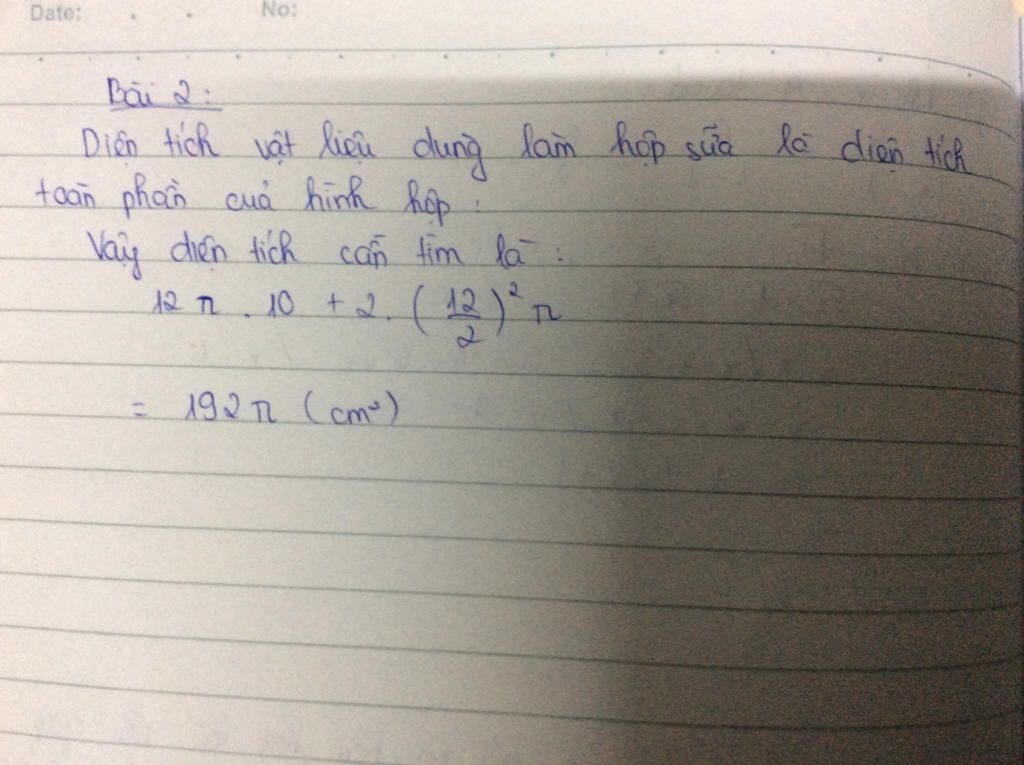 Date: . . No:
Bài 2:
Diện tích vật liệu dùng làm hộp sữa là diện tích
toàn phần của hình hộp :
Vậy diện tích cần tìm là :
12 π . 10 + 2. (12/2)² π
= 192 π (cm²)